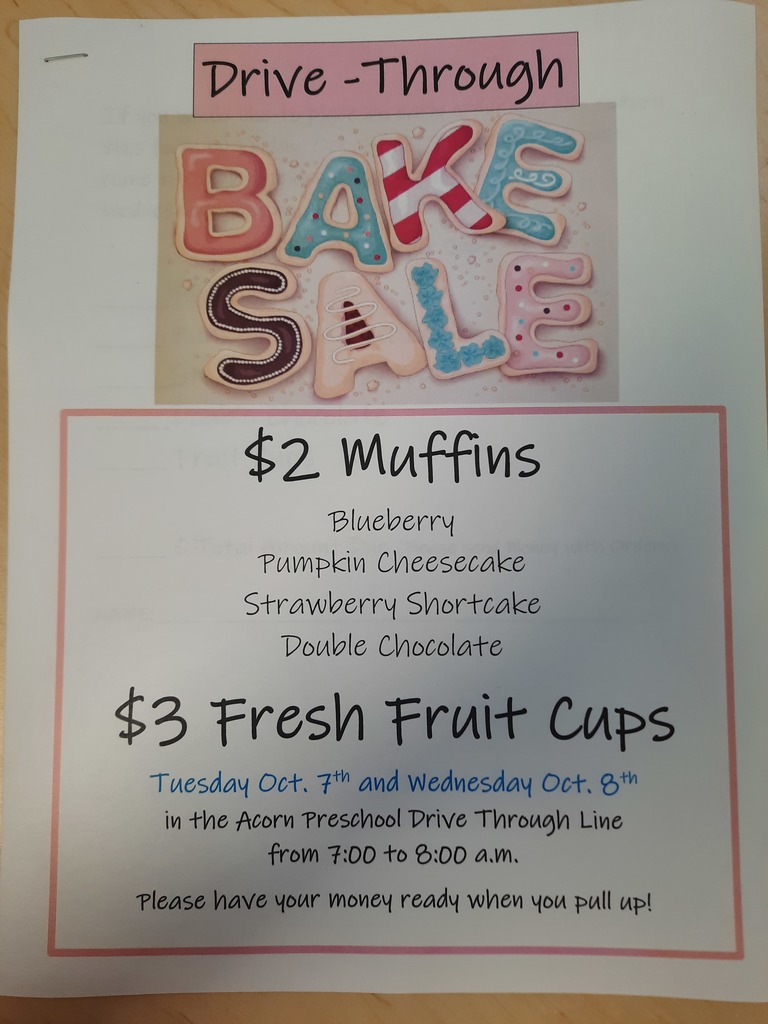 Drive -Through
BAKE
SALE
$2 Muffins
Blueberry
Pumpkin Cheesecake
Strawberry Shortcake
Double Chocolate
$3 Fresh Fruit Cups
Tuesday Oct. 7th and Wednesday Oct. 8th
in the Acorn Preschool Drive Through Line
from 7:00 to 8:00 a.m.
Please have your money ready when you pull up!